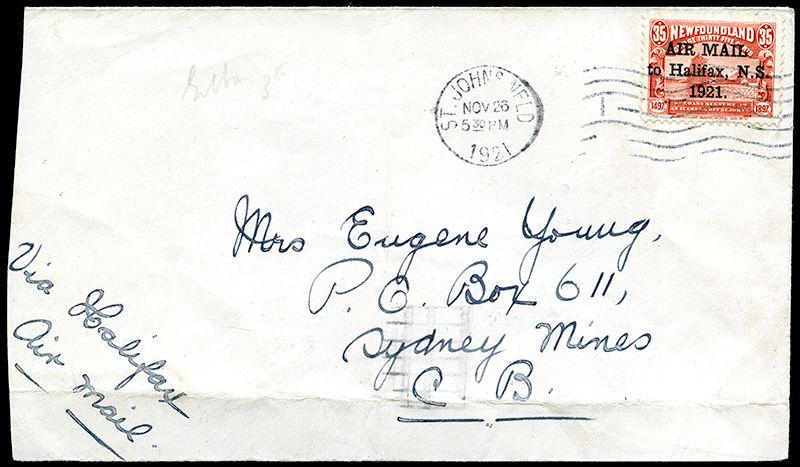 35 NEWFOUNDLAND 35
AIR MAIL
to Halifax, N.S.
1921.
1497 1897
ST. JOHN'S NFLD
NOV 26
5 30 PM
1921
Mrs Eugene Young,
P. O. Box 611,
Sydney Mines
C B.
Via Halifax
Air Mail.